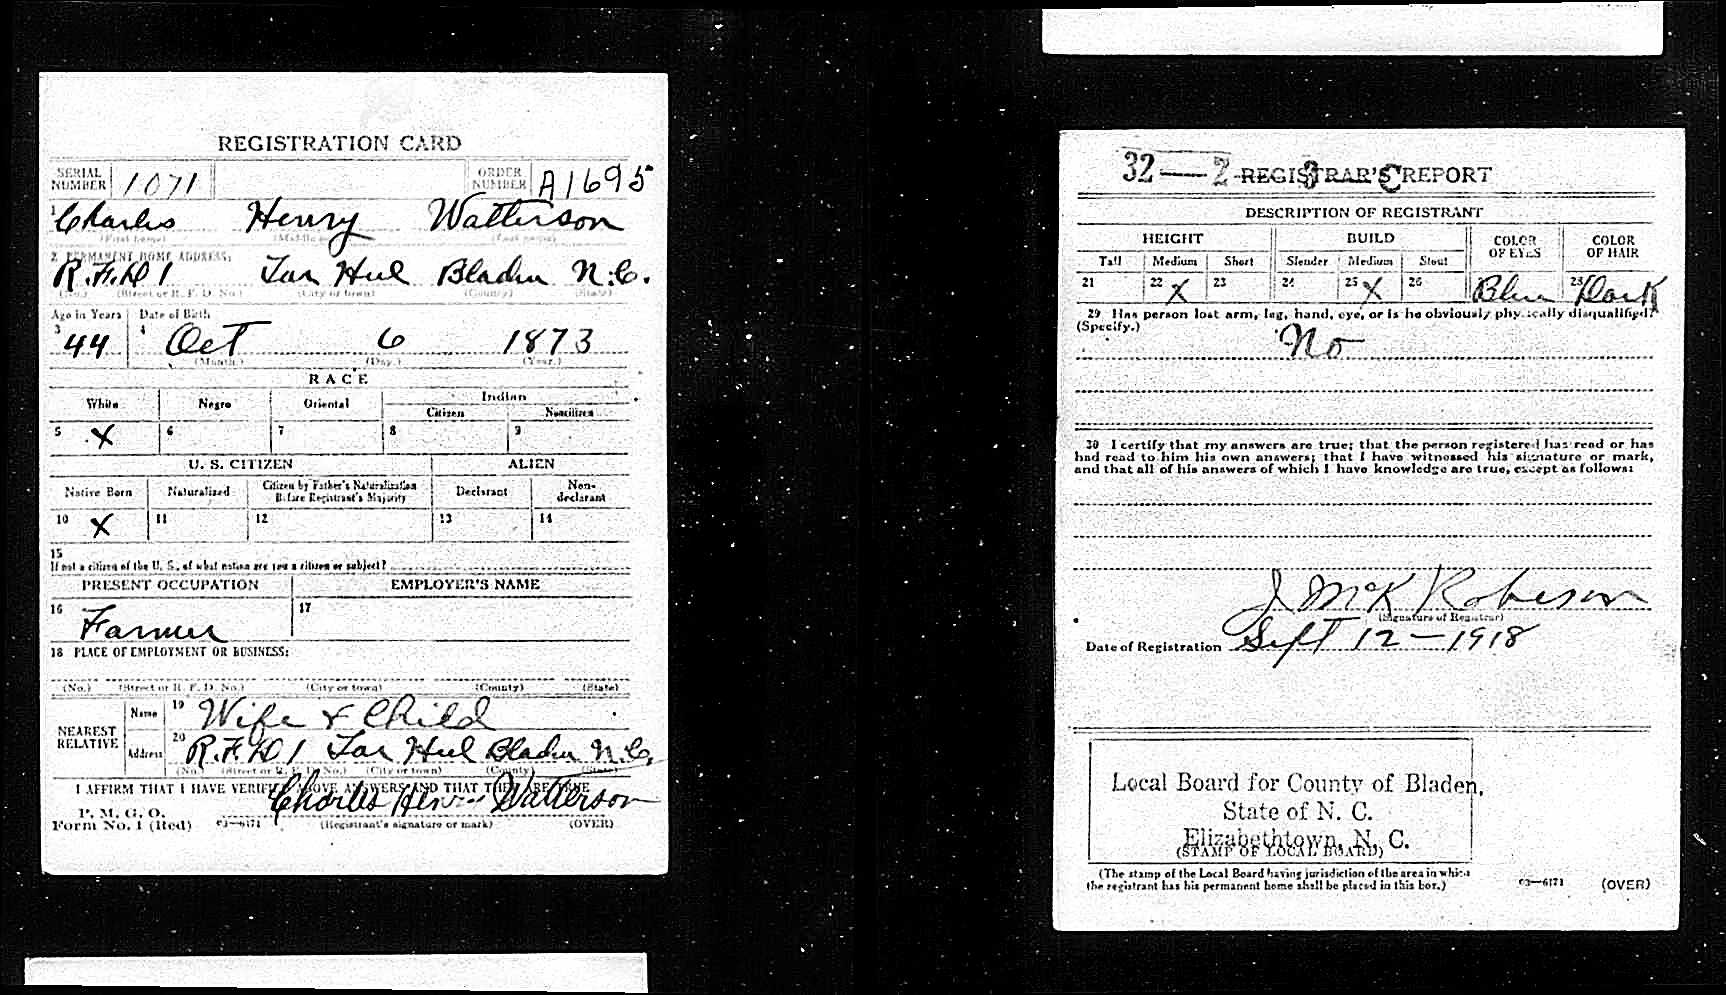 REGISTRATION CARD
SERIAL NUMBER 1071 ORDER NUMBER A1695
1 Charles Henry Watterson
(First name) (Middle name) (Last name)
2 PERMANENT HOME ADDRESS:
R.F.D 1 Tar Heel Bladen N.C.
(No.) (Street or R. F. D. No.) (City or town) (County) (State)
Age in Years Date of Birth
3 44 4 Oct 6 1873
(Month.) (Day.) (Year.)
RACE
White Negro Oriental Indian
Citizen Noncitizen
5 X 6 7 8 9
U. S. CITIZEN ALIEN
Native Born Naturalized Citizen by Father's Naturalization Before Registrant's Majority Declarant Non-declarant
10 X 11 12 13 14
15
If not a citizen of the U. S., of what nation are you a citizen or subject?
PRESENT OCCUPATION EMPLOYER'S NAME
16 Farmer 17
18 PLACE OF EMPLOYMENT OR BUSINESS:
(No.) (Street or R. F. D. No.) (City or town) (County) (State)
NEAREST RELATIVE
Name 19 Wife & Child
Address 20 R.F.D 1 Tar Heel Bladen N.C.
(No.) (Street or R. F. D. No.) (City or town) (County) (State)
I AFFIRM THAT I HAVE VERIFIED ABOVE ANSWERS AND THAT THEY ARE TRUE
P. M. G. O.
Form No. 1 (Red) 03—6171 Charles Henry Watterson
(Registrant's signature or mark) (OVER)
32—2—3—C REGISTRAR'S REPORT
DESCRIPTION OF REGISTRANT
HEIGHT BUILD COLOR OF EYES COLOR OF HAIR
Tall Medium Short Slender Medium Stout
21 22 X 23 24 25 X 26 Blue 28 Dark
29 Has person lost arm, leg, hand, eye, or is he obviously physically disqualified?
(Specify.)
No
30 I certify that my answers are true; that the person registered has read or has
had read to him his own answers; that I have witnessed his signature or mark,
and that all of his answers of which I have knowledge are true, except as follows:
J McK Robeson
(Signature of Registrar)
Date of Registration Sept 12 — 1918
Local Board for County of Bladen,
State of N. C.
Elizabethtown, N. C.
(STAMP OF LOCAL BOARD)
(The stamp of the Local Board having jurisdiction of the area in which
the registrant has his permanent home shall be placed in this box.)
03—6171 (OVER)